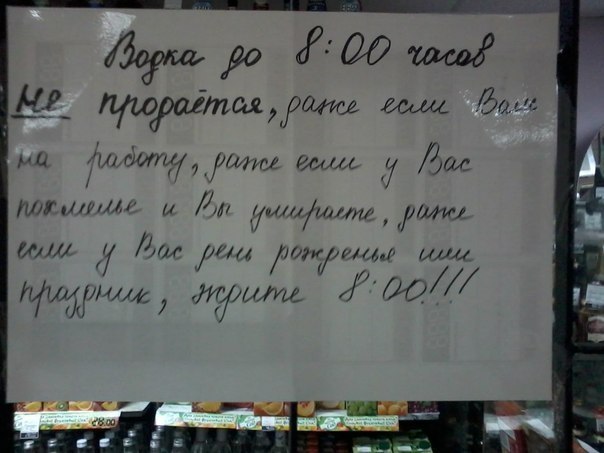 Водка до 8:00 часов
не продаётся, даже если Вам
на работу, даже если у Вас
похмелье и Вы умираете, даже
если у Вас день рожденья или
праздник, ждите 8:00!!!
28.00